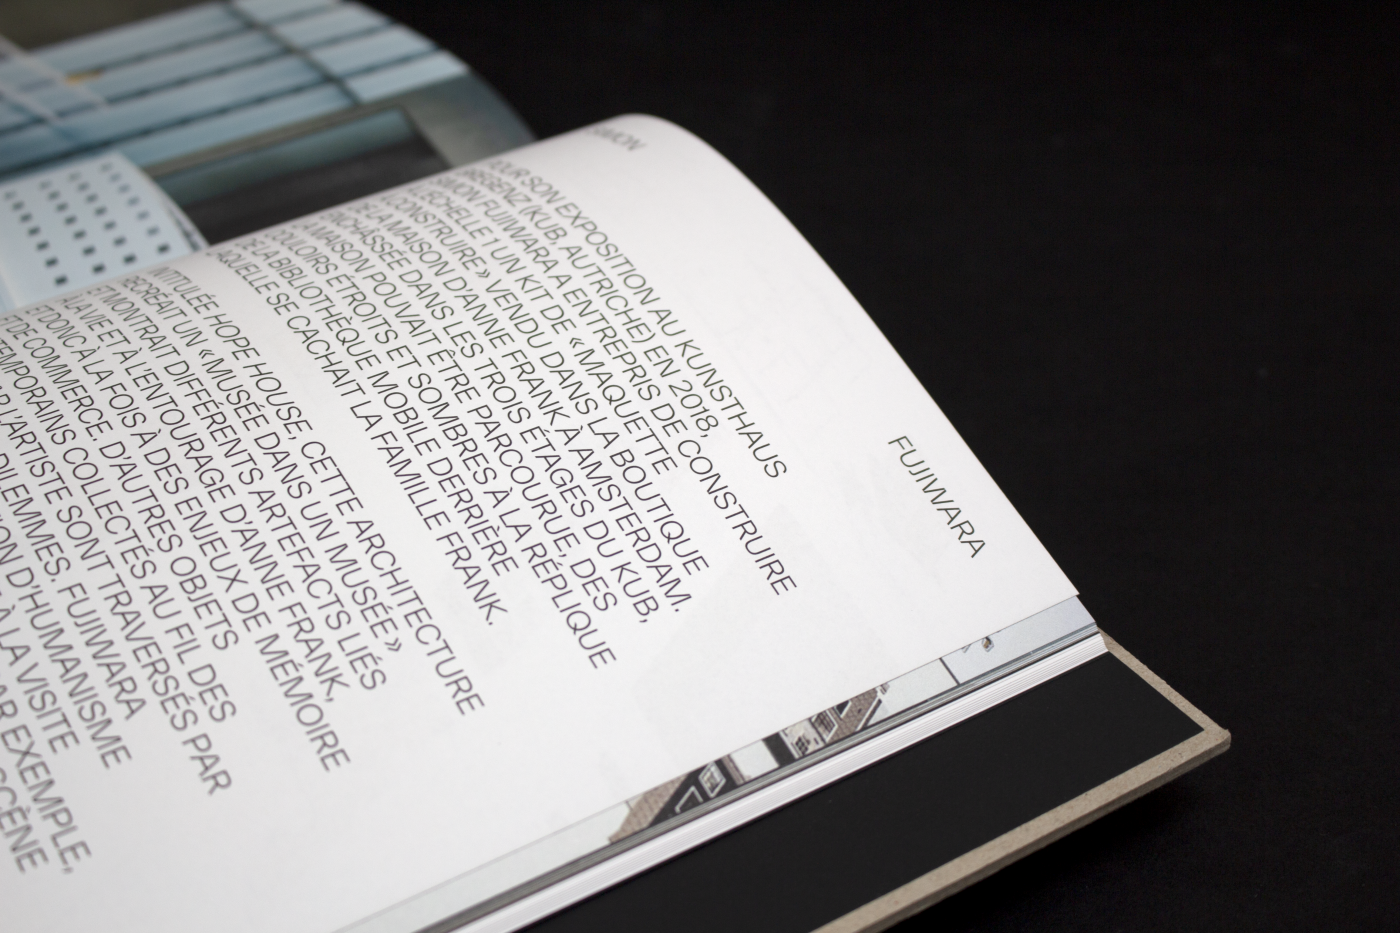 SIMON
FUJIWARA
POUR SON EXPOSITION AU KUNSTHAUS
BREGENZ (KUB, AUTRICHE) EN 2018,
SIMON FUJIWARA A ENTREPRIS DE CONSTRUIRE
À L'ÉCHELLE 1 UN KIT DE « MAQUETTE
À CONSTRUIRE » VENDU DANS LA BOUTIQUE
DE LA MAISON D'ANNE FRANK À AMSTERDAM.
ENCHÂSSÉE DANS LES TROIS ÉTAGES DU KUB,
LA MAISON POUVAIT ÊTRE PARCOURUE, DES
COULOIRS ÉTROITS ET SOMBRES À LA RÉPLIQUE
DE LA BIBLIOTHÈQUE MOBILE DERRIÈRE
LAQUELLE SE CACHAIT LA FAMILLE FRANK.
INTITULÉE HOPE HOUSE, CETTE ARCHITECTURE
RECRÉAIT UN « MUSÉE DANS UN MUSÉE »
ET MONTRAIT DIFFÉRENTS ARTEFACTS LIÉS
À LA VIE ET À L'ENTOURAGE D'ANNE FRANK,
ET DONC À LA FOIS À DES ENJEUX DE MÉMOIRE
ET DE COMMERCE. D'AUTRES OBJETS
CONTEMPORAINS COLLECTÉS AU FIL DES
PAR L'ARTISTE SONT TRAVERSÉS PAR
DILEMMES. FUJIWARA
D'HUMANISME
À LA VISITE
PAR EXEMPLE,
SCÈNE